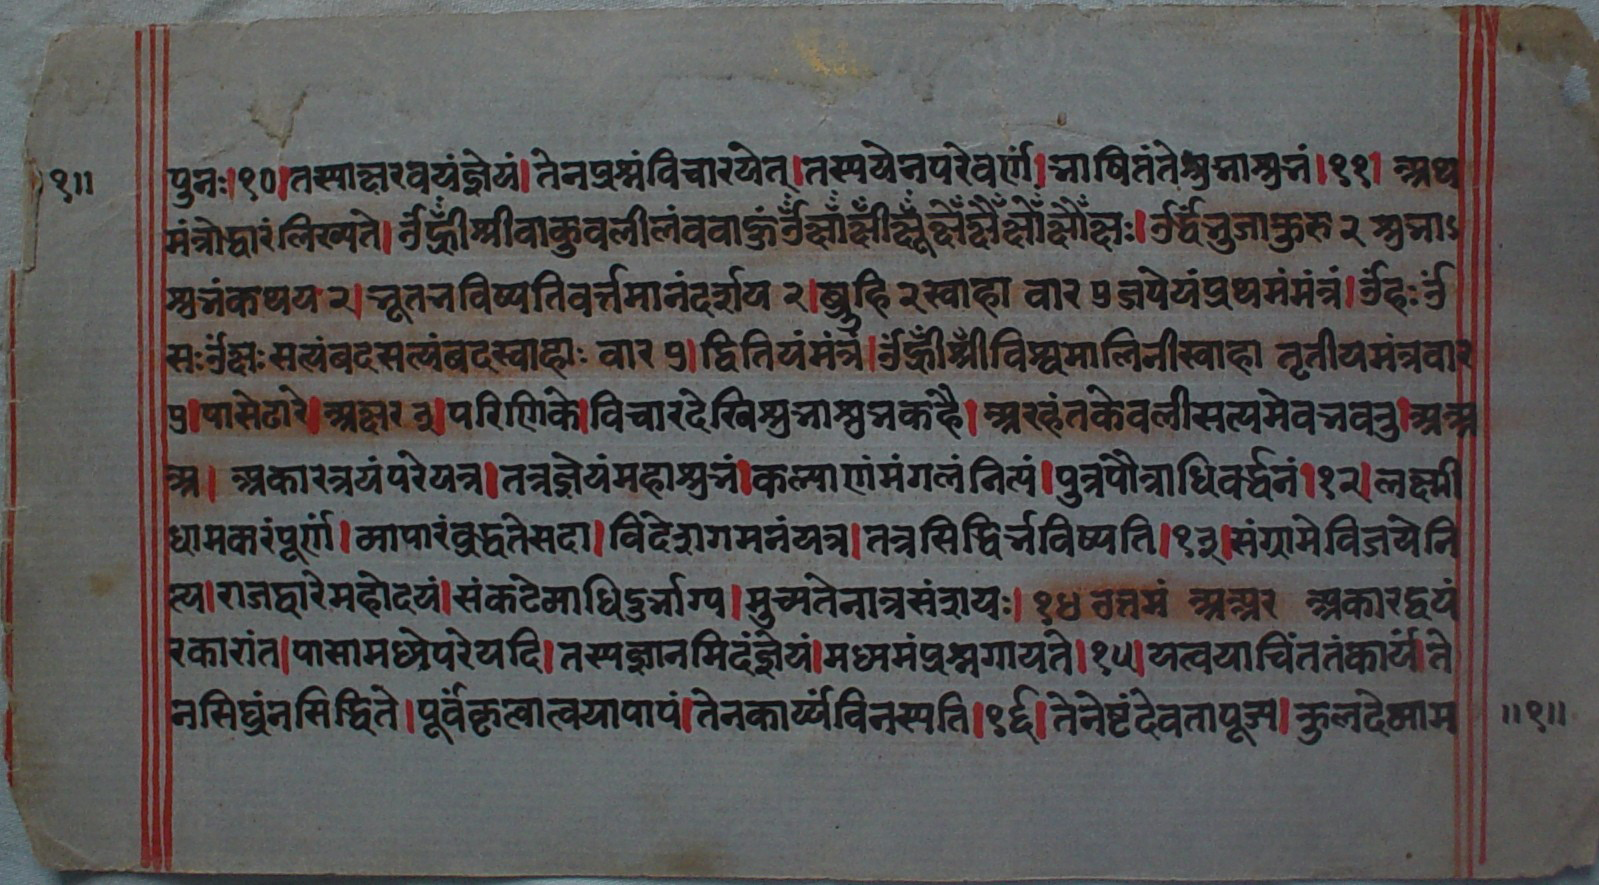 १॥ पुनः।१०।तस्याक्षरवयंज्ञेयं।तेनप्रश्नंविचारयेत्।तस्पयेनपरेवर्णं।भाषितंतेशुभाशुभं।११। अथ
मंत्रोद्वारंलिख्यते।
श्रुभंकथय २।भूतभविष्यतिवर्त्तमानंदर्शय २।ब्रुहि २स्वाहा वार ७ जपेयंप्रथमंमंत्रं।ॐहःॐ
सःॐक्षःसत्यंबदसत्यंबदस्वाहाः वार ७।द्वितियंमंत्रं।ॐह्रीँश्रीँविश्वमालिनीस्वाहा तृतीयमंत्रवार
७।पासेढारे।अक्षर ३।परिणिके।विचारदेखिशुभाशुभकहै।अरहंतकेवलीसत्यमेवभवतु।अअ
अ। अकारत्रयंपरेयत्र।तत्रज्ञेयंमहाशुभं।कल्याणंमंगलंनित्यं।पुत्रपौत्राधिवर्द्धनं।१२।लक्ष्मी
धामकरंपूर्णं।व्यापारंव्रद्धतेसदा।विदेशगमनंयत्र।तत्रसिद्धिर्भविष्यति।१३।संग्रामेविजयेनि
त्य।राजद्वारेमहोदयं।संकटेव्याधिदुर्भाग्य।मुच्यतेनात्रसंशयः। १४ उत्तमं अअर अकारद्वयं
रकारांत।पासामध्येपरेयदि।तस्पज्ञानमिदंज्ञेयं।मध्यमंप्रश्नगायते।१५।यत्वयाचिंततंकार्यं।ते
नसिघ्रंनसिद्धिते।पूर्वंकृत्वात्वयापापं।तेनकार्य्यंविनस्पति।१६।तेनेष्टंदेवतापूज्य।कुलदेव्याम ॥१॥